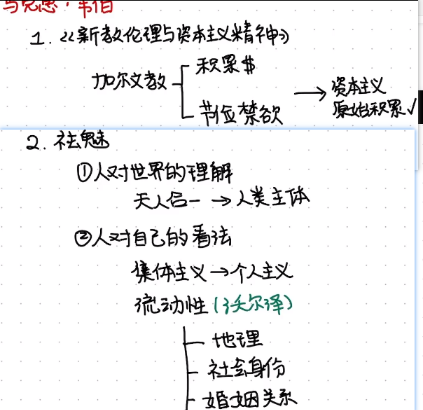 马克思·韦伯
1. 《新教伦理与资本主义精神》
加尔文教
积累$
节俭禁欲
→ 资本主义
原始积累✓
2. 祛魅
①人对世界的理解
天人合一 → 人类主体
②人对自己的看法
集体主义→个人主义
流动性(沃尔泽)
地理
社会身份
婚姻关系